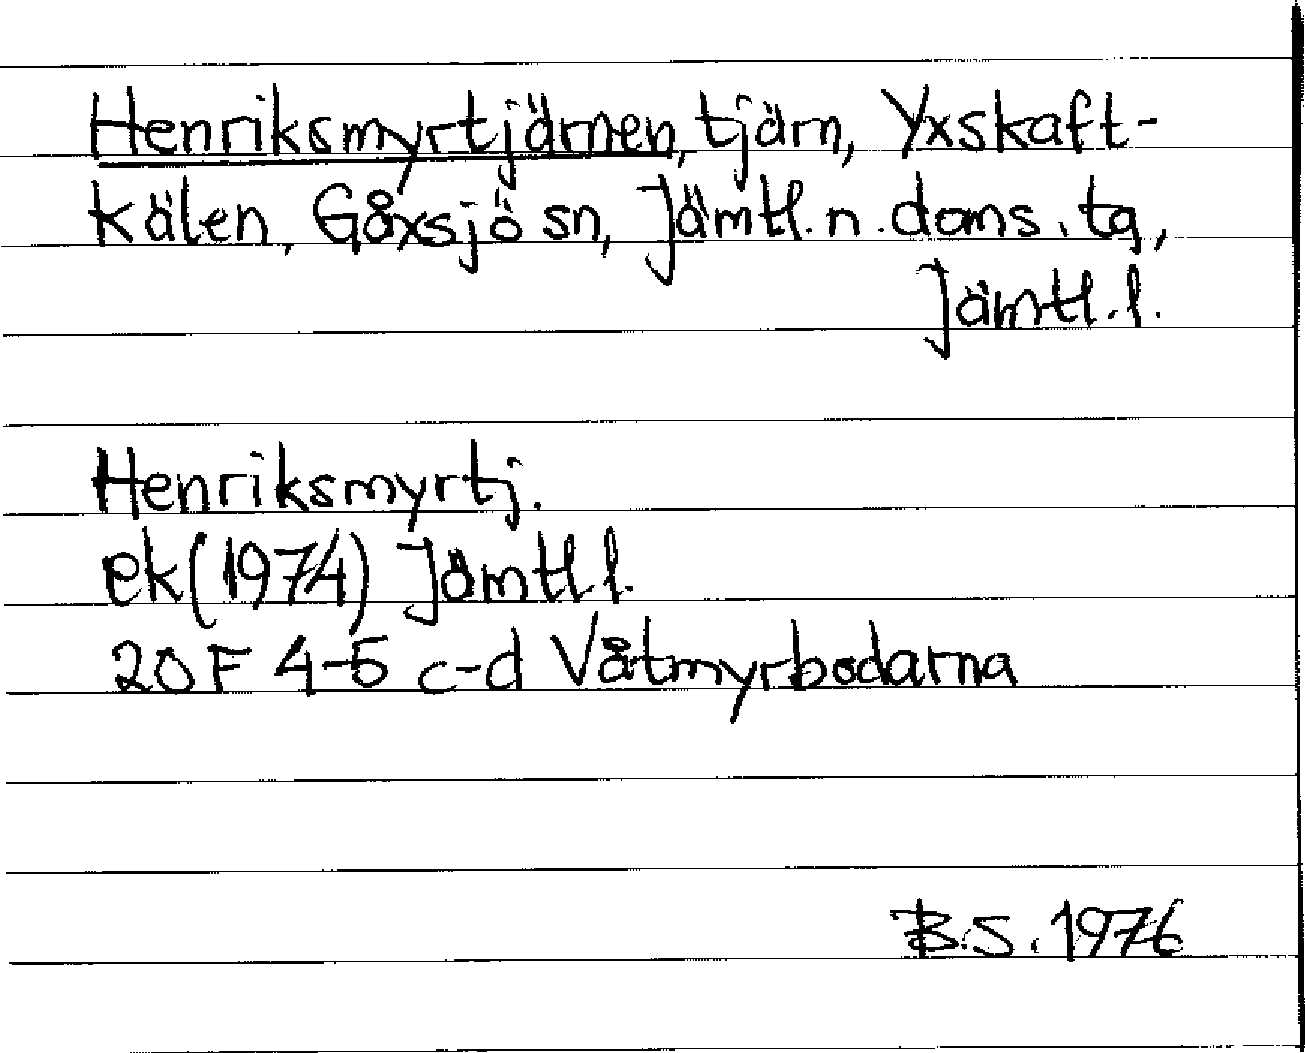 Henriksmyrtjärnen, tjärn, Yxskaft-
kälen, Gåxsjö sn, Jämtl. n. doms. tg,
Jämtl. l.
Henriksmyrtj.
ek (1974) Jämtl l.
20 F 4-5 c-d Våtmyrbodarna
B.S. 1976